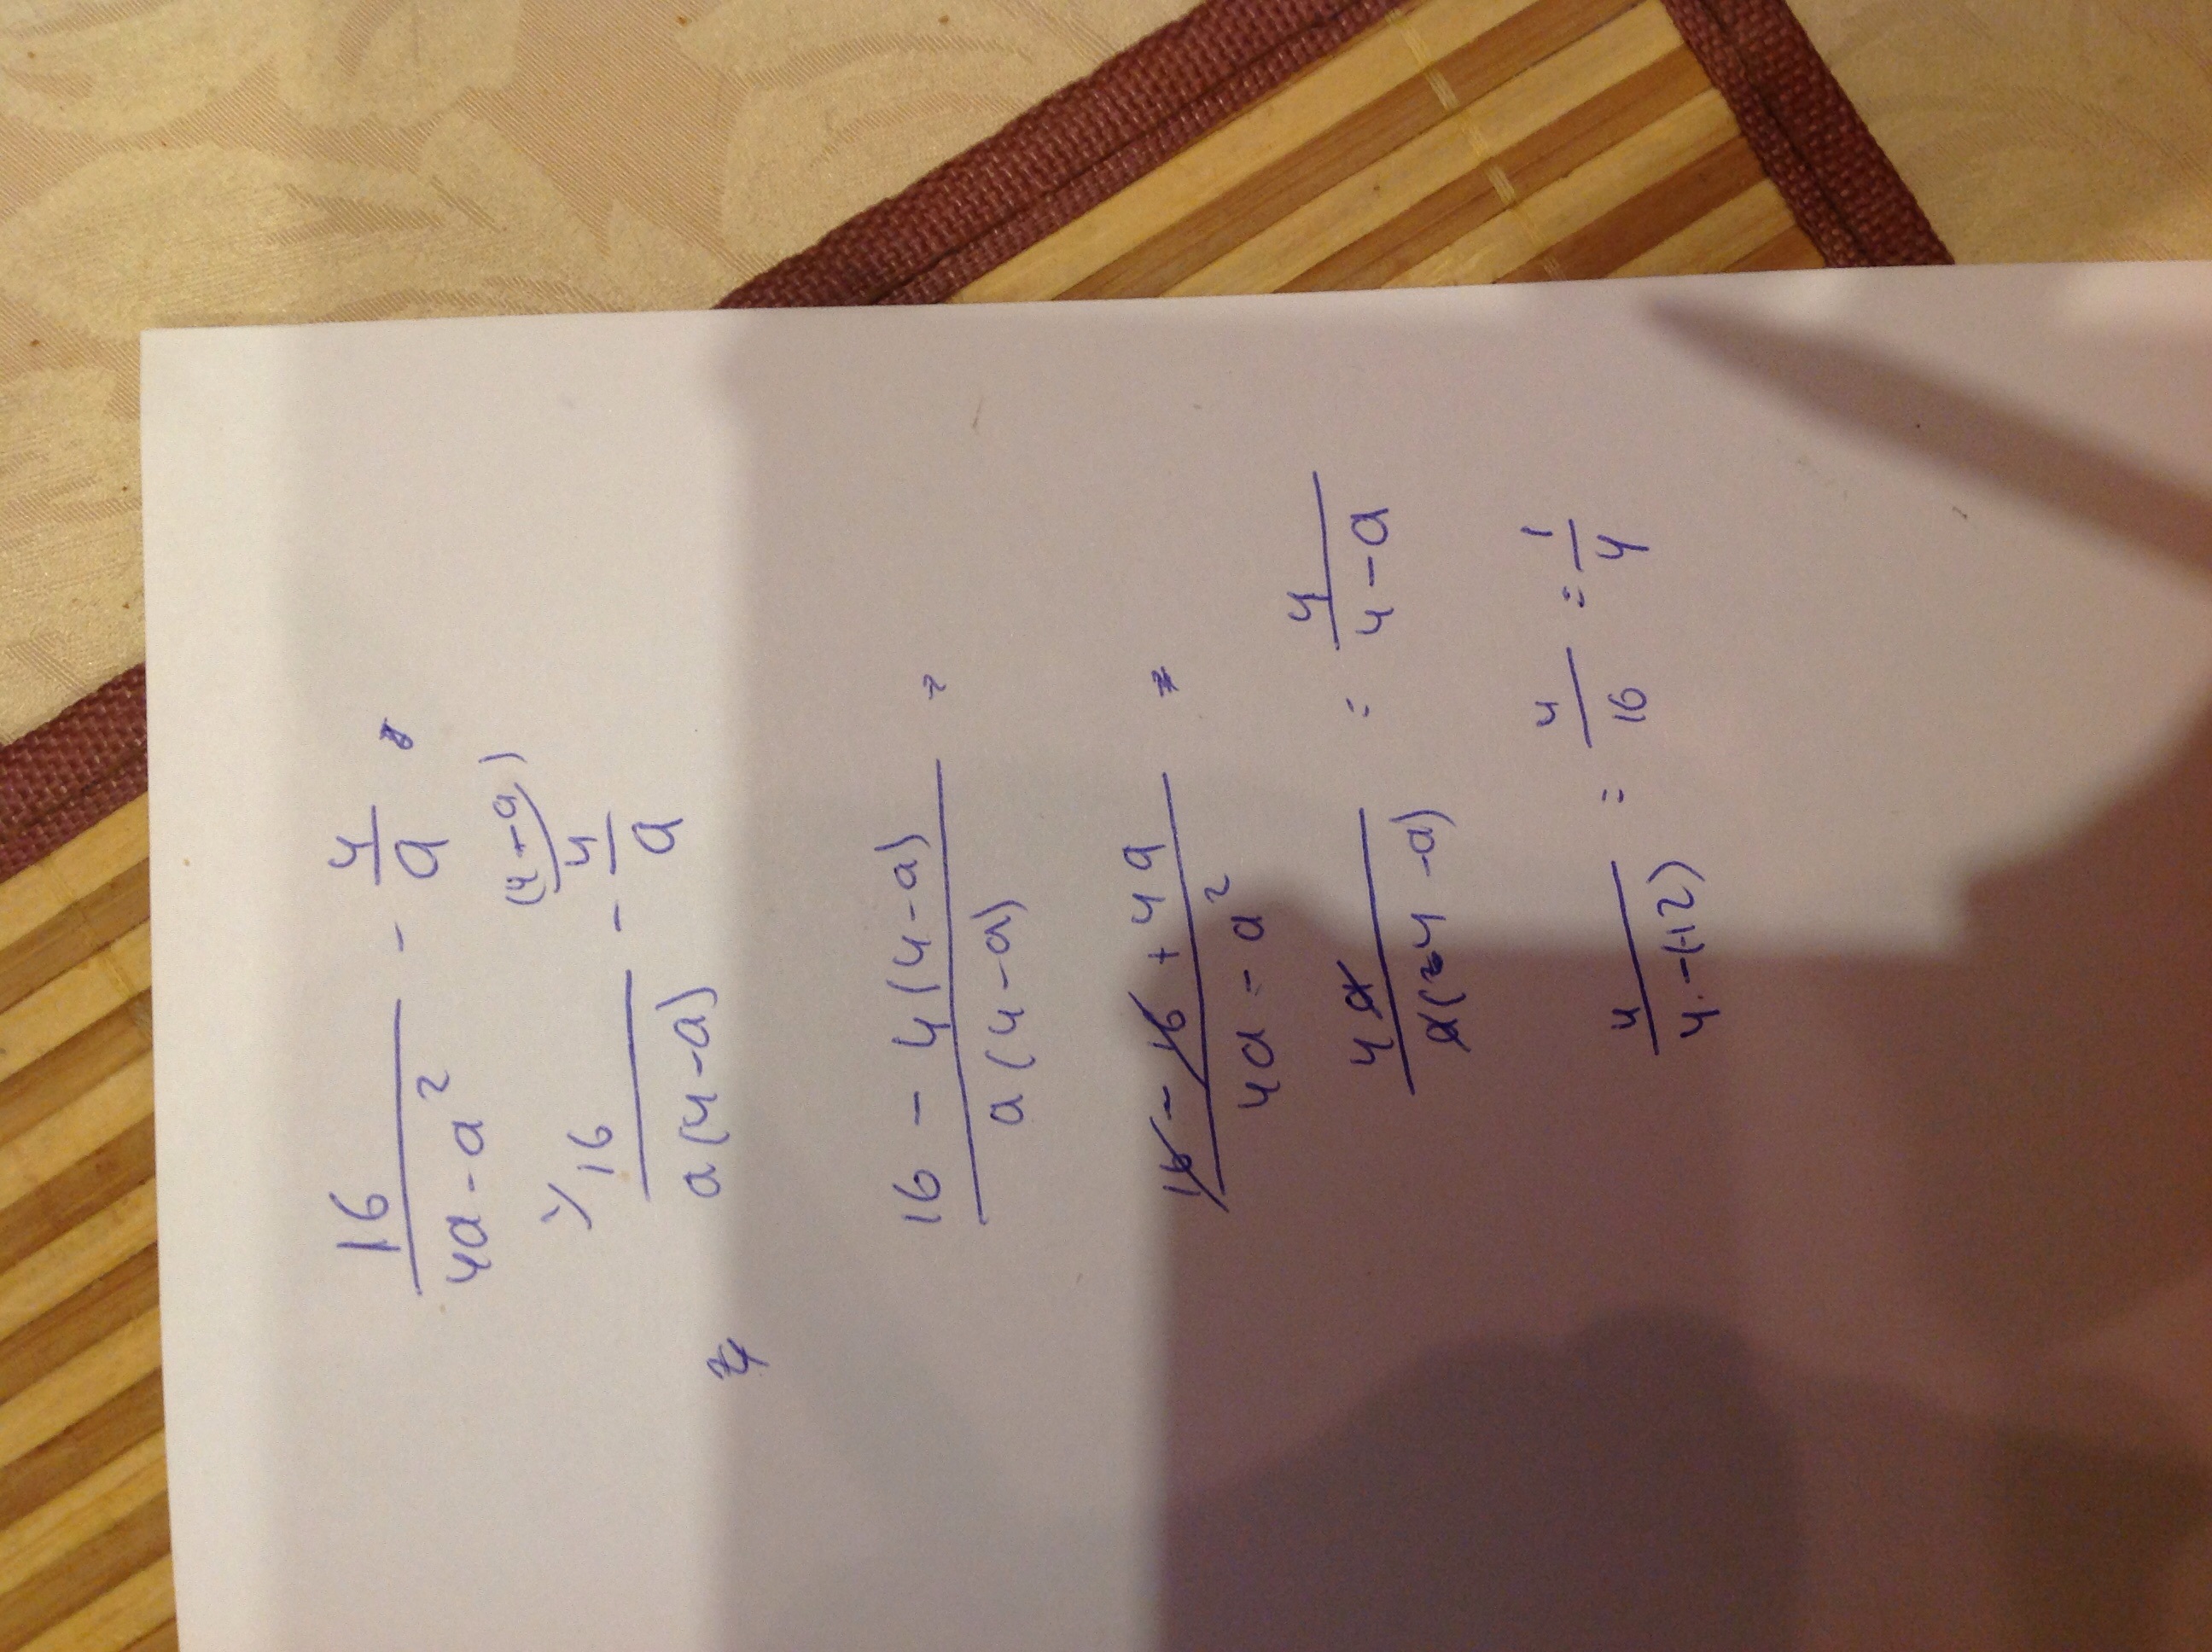 16/(4a - a²) - 4/a
(4-a)
16/(a(4-a)) - 4/a
(16 - 4(4-a))/(a(4-a)) =
(16 - 16 + 4a)/(4a - a²) =
4a/(a(4-a)) = 4/(4-a)
4/(4-(-12)) = 4/16 = 1/4